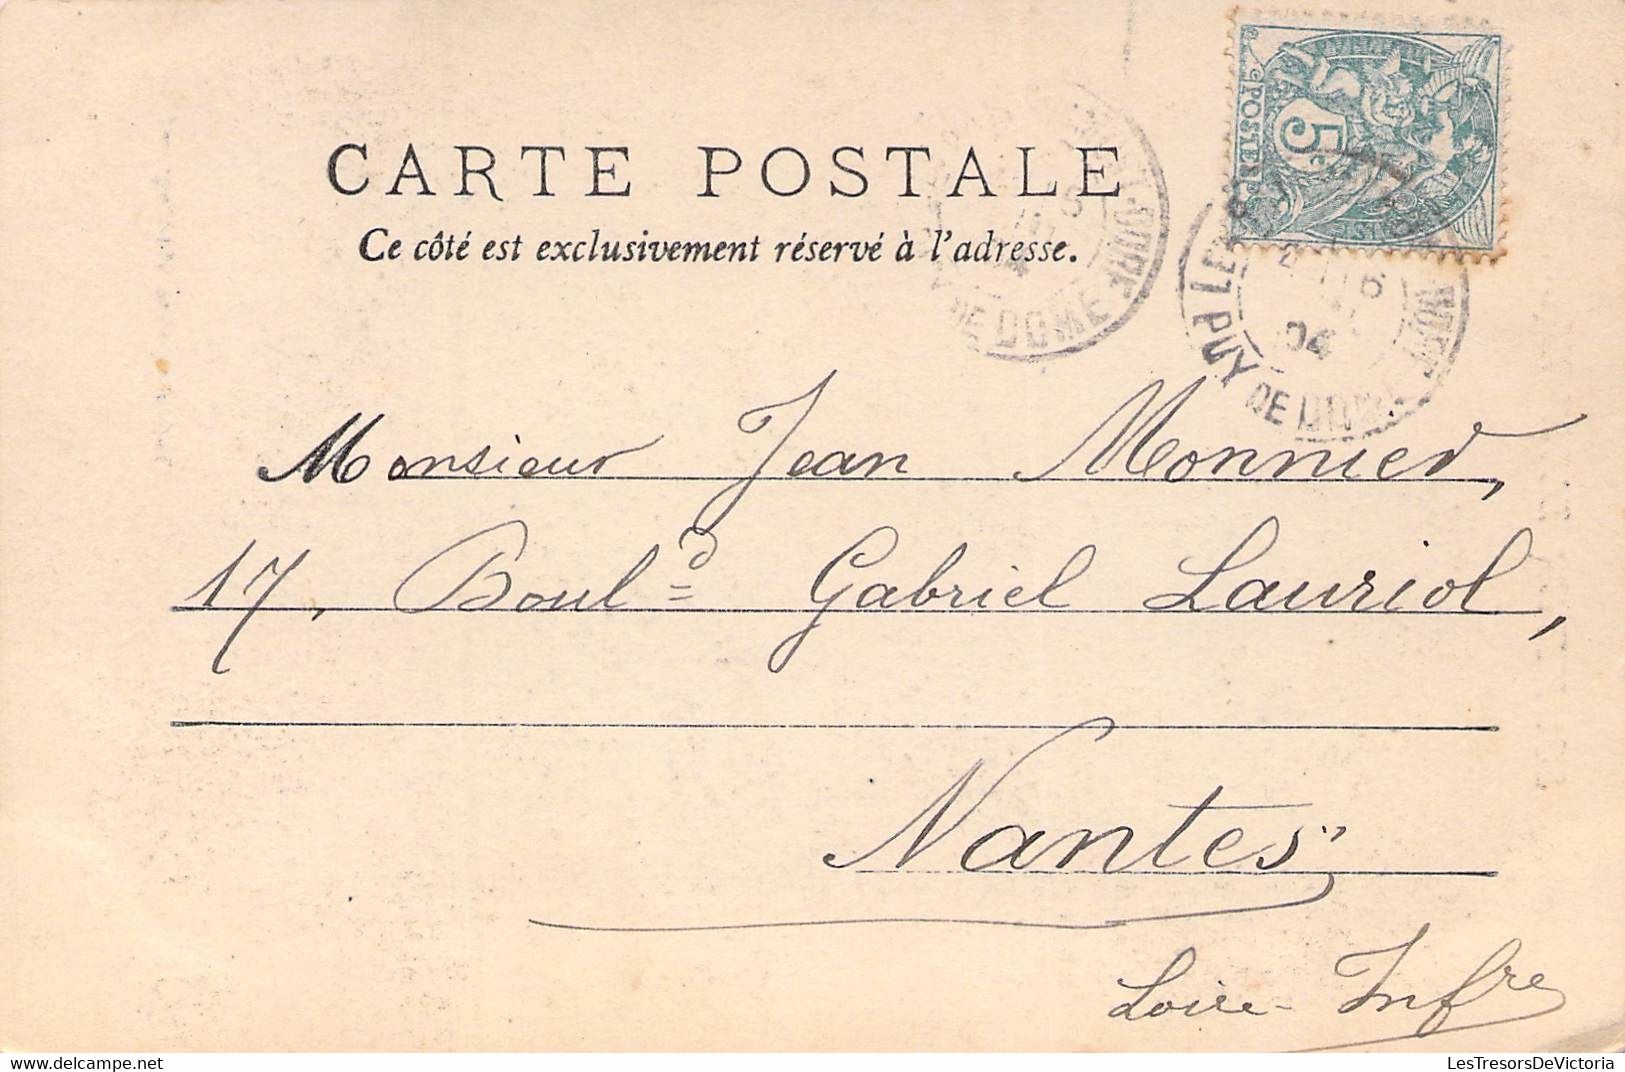 CARTE POSTALE
Ce côté est exclusivement réservé à l'adresse.
POSTES
5c
DE DOME
PUY DE
04
Monsieur Jean Monnier,
17, Boul.d Gabriel Lauriol,
Nantes
Loire-Infre
LesTresorsDeVictoria